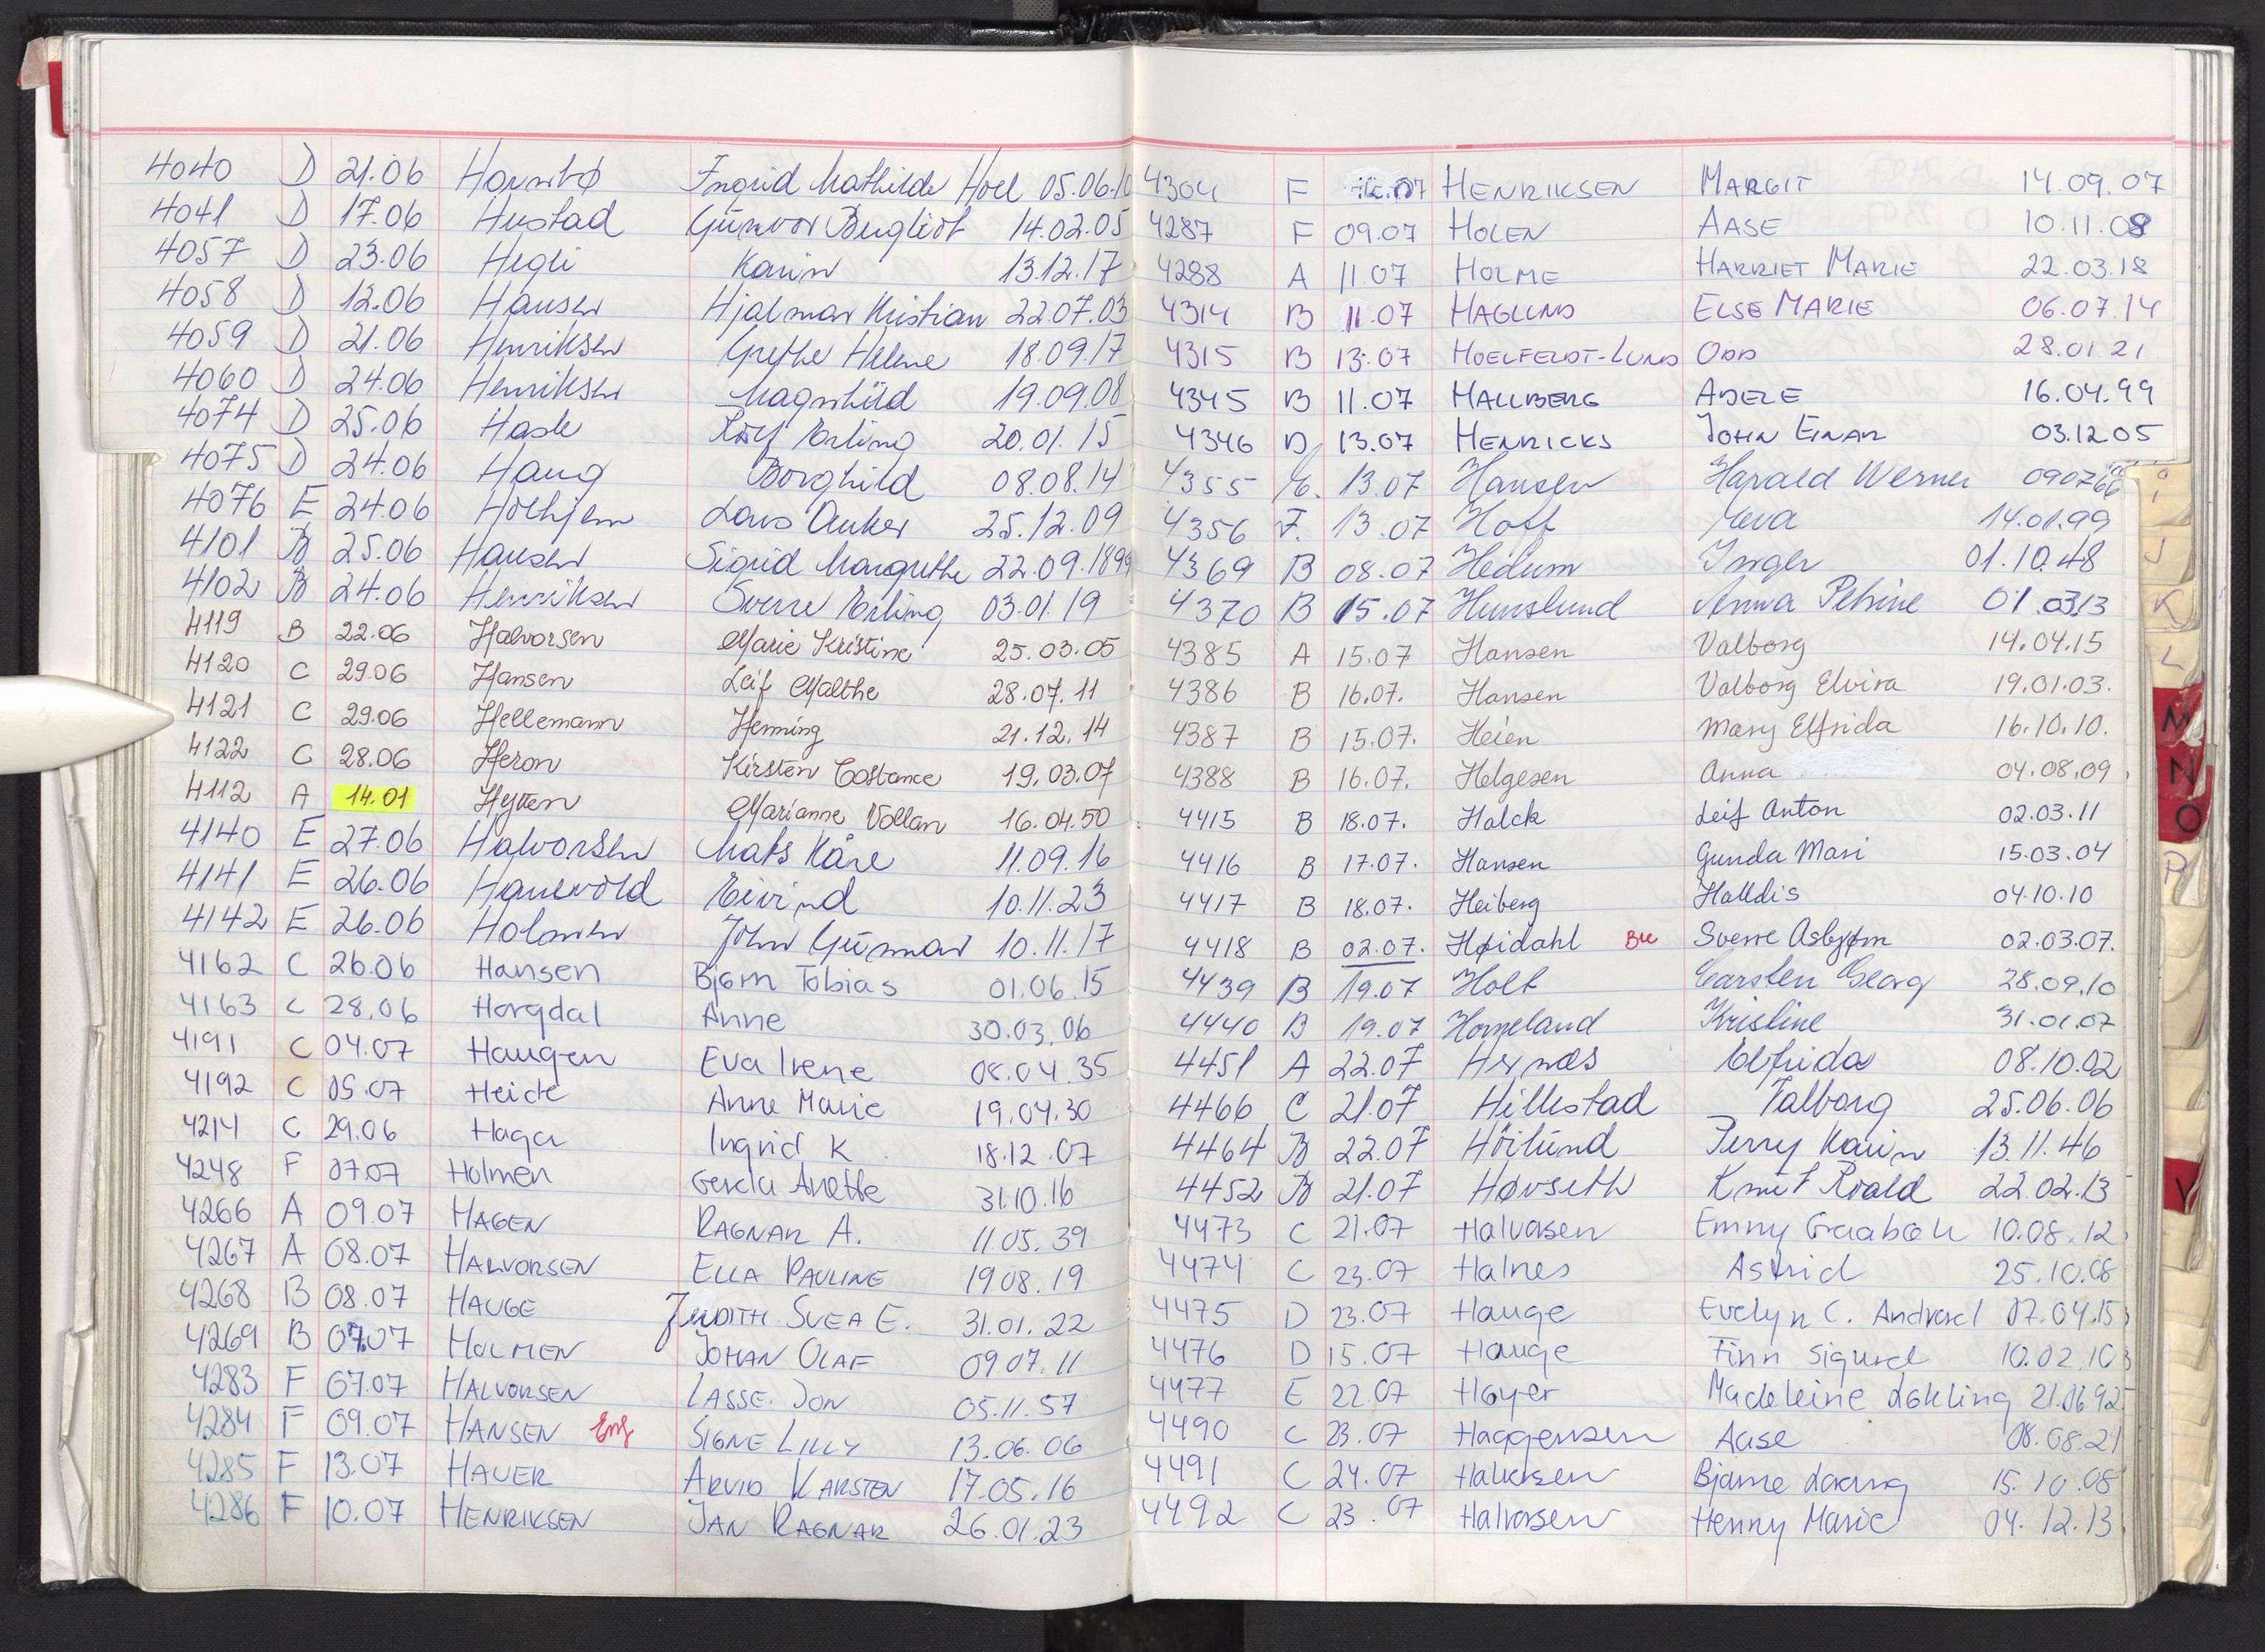 4040 D 21.06 Hornsbø Ingrid Mathilde Hoel 05.06.10
4041 D 17.06 Hustad Gunvor Bergliot 14.02.05
4057 D 23.06 Hegli Karin 13.12.17
4058 D 12.06 Hansen Hjalmar Kristian 22.07.03
4059 D 21.06 Henriksen Grethe Helene 18.09.17
4060 D 24.06 Henriksen Magnhild 19.09.08
4074 D 25.06 Hasle Rolf Erling 20.01.15
4075 D 24.06 Haug Borghild 08.08.14
4076 E 24.06 Holthjem Lars Anker 25.12.09
4101 B 25.06 Hansen Sigrid Margrethe 22.09.1899
4102 B 24.06 Henriksen Sverre Erling 03.01.19
4119 B 22.06 Halvorsen Marie Kristine 25.03.05
4120 C 29.06 Hansen Leif Malthe 28.07.11
4121 C 29.06 Hellemann Henning 21.12.14
4122 C 28.06 Heron Kirsten Costance 19.03.07
4112 A 14.01 Hytten Marianne Vollan 16.04.50
4140 E 27.06 Halvorsen Mats Kåre 11.09.16
4141 E 26.06 Hanevold Eivind 10.11.23
4142 E 26.06 Holmen John Gunnar 10.11.17
4162 C 26.06 Hansen Bjørn Tobias 01.06.15
4163 C 28.06 Horgdal Anne 30.03.06
4191 C 04.07 Haugen Eva Irene 08.04.35
4192 C 05.07 Heide Anne Marie 19.04.30
4214 C 29.06 Haga Ingrid K 18.12.07
4248 F 07.07 Holmen Gerda Anette 31.10.16
4266 A 09.07 HAGEN RAGNAR A. 11.05.39
4267 A 08.07 HALVORSEN ELLA PAULINE 19 08.19
4268 B 08.07 HAUGE JUDITH SVEA E. 31.01.22
4269 B 07.07 HOLMEN JOHAN OLAF 09 07.11
4283 F 07.07 HALVORSEN LASSE JON 05.11.57
4284 F 09.07 HANSEN SIGNE LILLY 13.06.06
4285 F 13.07 HAUER ARVID KARSTEN 17.05.16
4286 F 10.07 HENRIKSEN JAN RAGNAR 26.01.23
4304 F 12.07 HENRIKSEN MARGIT 14.09.07
4287 F 09.07 HOLEN AASE 10.11.08
4288 A 11.07 HOLME HARRIET MARIE 22.03.18
4314 B 11.07 HAGLUND ELSE MARIE 06.07.14
4315 B 13.07 HOELFELDT-LUND ODD 28.01 21
4345 B 11.07 HALLBERG ADELE 16.04.99
4346 D 13.07 HENRICKS JOHN EINAR 03.12 05
4355 E. 13.07 Hansen Harald Werner 090766
4356 F. 13.07 Hoff Eva 14.01.99
4369 B 08.07 Hedum Inger 01.10.48
4370 B 15.07 Hunslund Anna Petrine 01.0313
4385 A 15.07 Hansen Valborg 14.04.15
4386 B 16.07. Hansen Valborg Elvira 19.01.03.
4387 B 15.07. Heien Mary Elfrida 16.10.10.
4388 B 16.07. Helgesen Anna 04.08.09
4415 B 18.07. Halck Leif Anton 02.03.11
4416 B 17.07. Hansen Gunda Mari 15.03.04
4417 B 18.07. Heiberg Halldis 04.10.10
4418 B 02.07. Høidahl Sverre Asbjørn 02.03.07.
4439 B 19.07 Holt Carsten Georg 28.09.10
4440 B 19.07 Homeland Kristine 31.01.07
4451 A 22.07 Hernæs Elfrida 08.10.02
4466 C 21.07 Hillestad Valborg 25.06.06
4464 B 22.07 Höilund Perry Karin 13.11.46
4452 B 21.07 Hovseth Knut Roald 22.02.13
4473 C 21.07 Halvorsen Emmy 10.08.12
4474 C 23.07 Halnes Astrid 25.10.08
4475 D 23.07 Hauge Evelyn C. 07.04.15
4476 D 15.07 Hauge Finn Sigurd 10.02.10
4477 E 22.07 Høyer Madeleine Løkling 21.06.92
4490 C 23.07 Haggensen Aase 08.08.21
4491 C 24.07 Halvorsen Bjarne 15.10.08
4492 C 23.07 Halvorsen Henny Marie 04.12.13
J
K
L
M
N
O
P